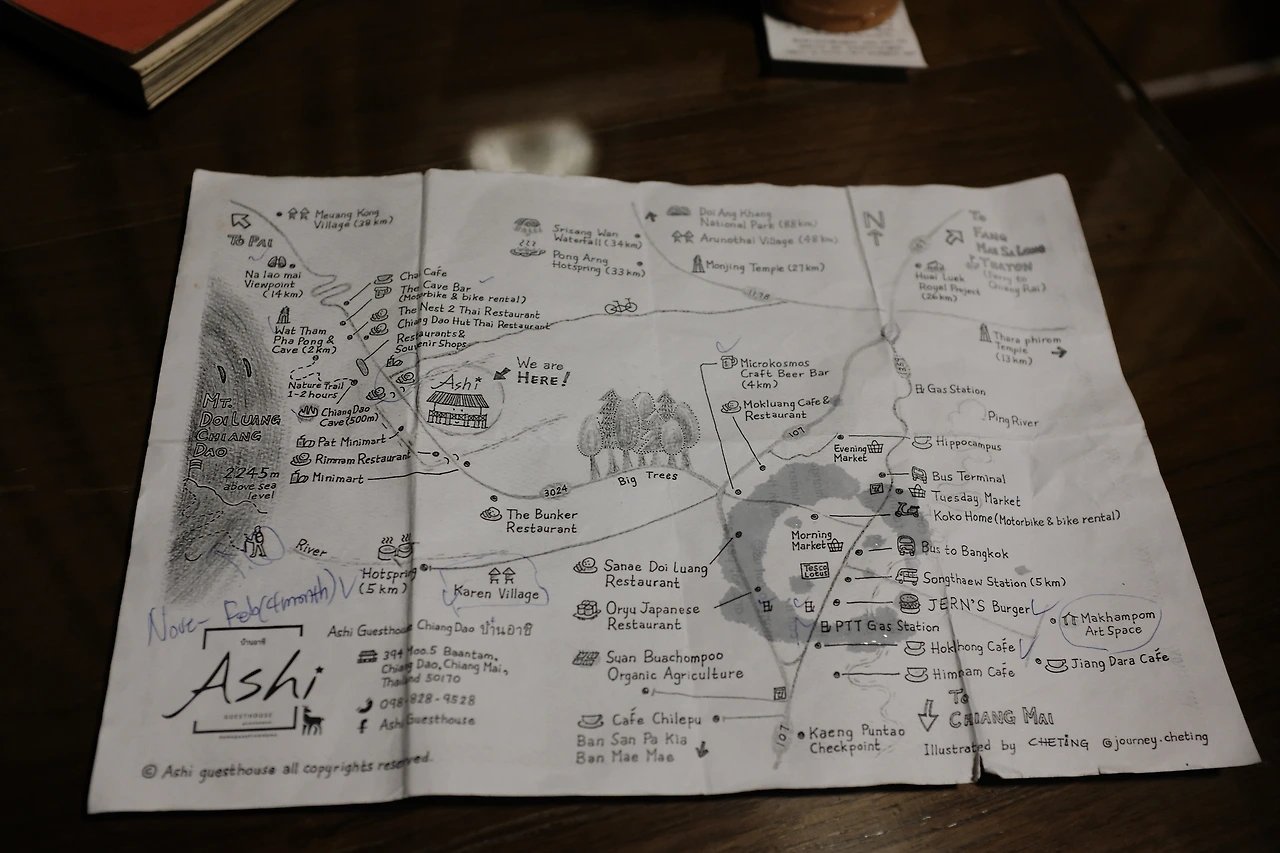 Meuang Kong
Village (28km)
To PAI
Na lao mai
Viewpoint
(14km)
Srisang Wan
Waterfall (34km)
Pong Arng
Hotspring (33km)
Doi Ang Khang
National Park (88km)
Arunothai Village (48km)
Monjing Temple (27km)
1178
N
To
FANG
MAE SALONG
THATON
(Ferry to
Chiang Rai)
Huai Luek
Royal Project
(26km)
Cha Cafe
The Cave Bar
(Motorbike & bike rental)
The Nest 2 Thai Restaurant
Chiang Dao Hut Thai Restaurant
Restaurants &
Souvenir Shops
Wat Tham
Pha Pong &
Cave (2km)
Nature Trail
1-2 hours
ChiangDao
Cave (500m)
Pat Minimart
Rimnam Restaurant
Minimart
MT.
DOI LUANG
CHIANG
DAO
2245m
above sea
level
Ashi
We are
HERE!
Microkosmos
Craft Beer Bar
(4km)
Mokluang Cafe &
Restaurant
Thara phirom
Temple
(13km)
Gas Station
Ping River
107
Evening
Market
Hippocampus
Bus Terminal
Tuesday Market
Koko Home (Motorbike & bike rental)
Big Trees
3024
The Bunker
Restaurant
River
Hotspring
(5km)
Karen Village
Morning
Market
Tesco
Lotus
Bus to Bangkok
Songthaew Station (5km)
JERN'S Burger
PTT Gas Station
Makhampom
Art Space
Hokhong Cafe
Jiang Dara Cafe
Himpam Cafe
Sanae Doi Luang
Restaurant
Oryu Japanese
Restaurant
Suan Buachompoo
Organic Agriculture
Cafe Chilepu
Ban San Pa Kia
Ban Mae Mae
107
Kaeng Puntao
Checkpoint
To
CHIANG MAI
Illustrated by CHETING @journey.cheting
Nove- Feb(4month)
บ้านอาชิ
Ashi
GUESTHOUSE
Ashi Guesthouse ChiangDao บ้านอาชิ
394 Moo.5 Baantam,
Chiang Dao, Chiang Mai,
Thailand 50170
098-828-9528
Ashi Guesthouse
© Ashi guesthouse all copyrights reserved.